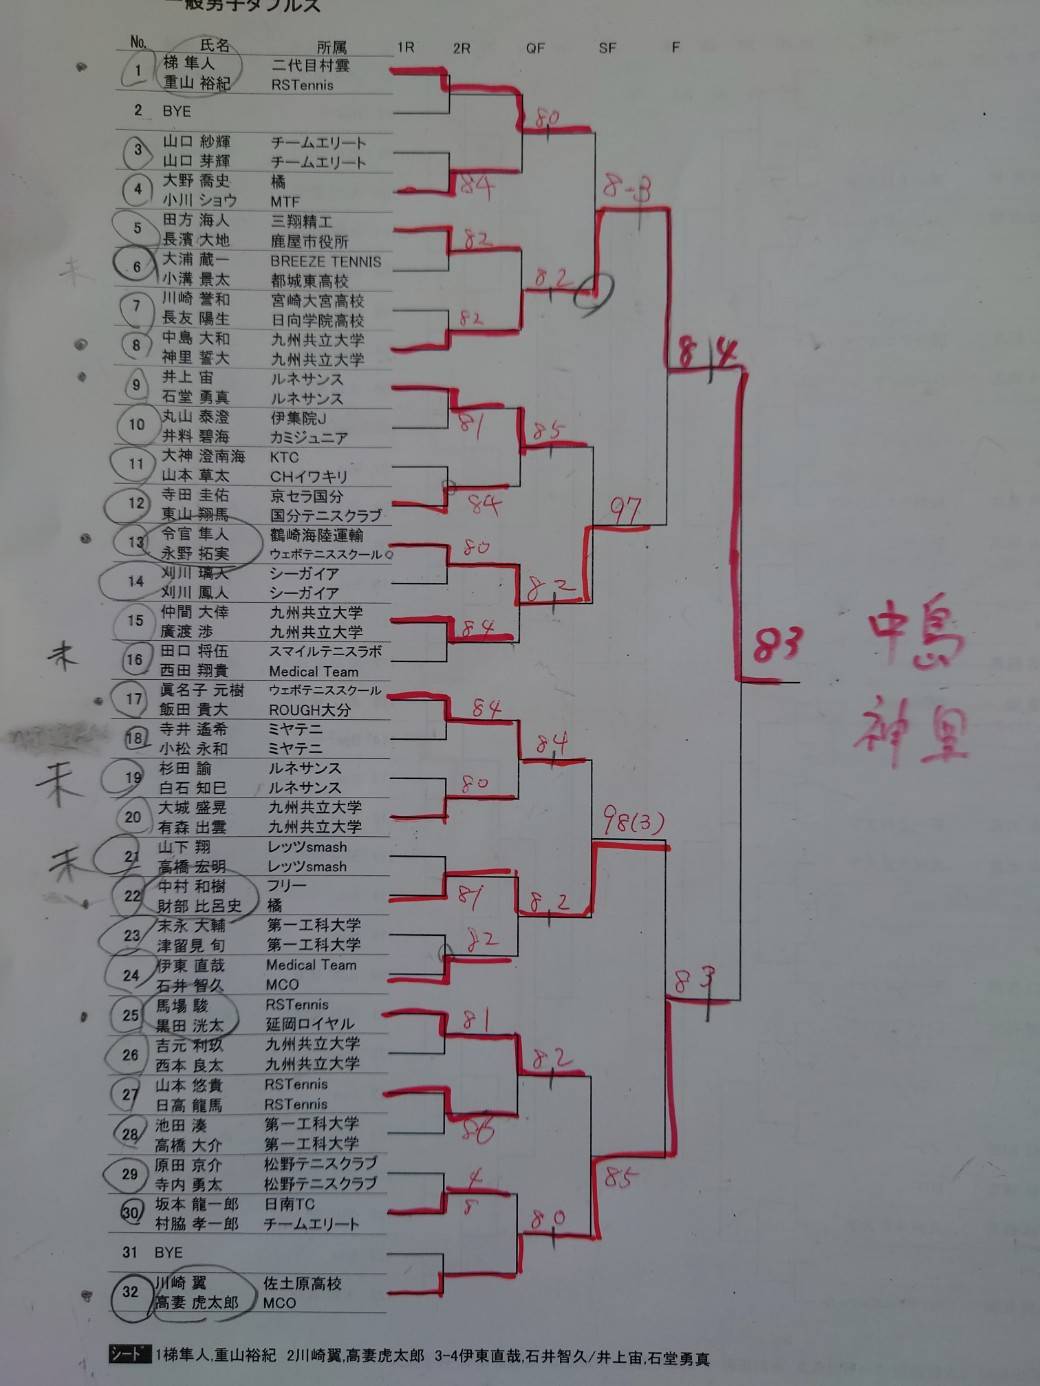 一般男子ダブルス
No. 氏名 所属 1R 2R QF SF F
1 梯 隼人 二代目村雲
重山 裕紀 RSTennis
2 BYE
80
3 山口 紗輝 チームエリート
山口 芽輝 チームエリート
4 大野 喬史 橘
84
8-3
小川 ショウ MTF
5 田方 海人 三翔精工
82
長濱 大地 鹿屋市役所
6 大浦 蔵一 BREEZE TENNIS
未
小溝 景太 都城東高校
82
7 川崎 誉和 宮崎大宮高校
長友 陽生 日向学院高校
82
8 中島 大和 九州共立大学
神里 誓大 九州共立大学
84
9 井上 宙 ルネサンス
石堂 勇真 ルネサンス
81
10 丸山 泰澄 伊集院J
井料 碧海 カミジュニア
85
11 大神 澄南海 KTC
山本 草太 CHイワキリ
12 寺田 圭佑 京セラ国分
84
97
東山 翔馬 国分テニスクラブ
13 令官 隼人 鶴崎海陸運輸
永野 拓実 ウェボテニススクール
80
14 刈川 璃人 シーガイア
刈川 鳳人 シーガイア
82
15 仲間 大倖 九州共立大学
廣渡 渉 九州共立大学
84
83
中島
16 田口 将伍 スマイルテニスラボ
未
西田 翔貴 Medical Team
17 眞名子 元樹 ウェボテニススクール
飯田 貴大 ROUGH大分
84
神里
18 寺井 遙希 ミヤテニ
小松 永和 ミヤテニ
84
19 杉田 諭 ルネサンス
未
白石 知巳 ルネサンス
80
20 大城 盛晃 九州共立大学
有森 出雲 九州共立大学
98(3)
21 山下 翔 レッツsmash
未
高橋 宏明 レッツsmash
22 中村 和樹 フリー
81
82
財部 比呂史 橘
23 末永 大輔 第一工科大学
津留見 旬 第一工科大学
82
24 伊東 直哉 Medical Team
石井 智久 MCO
83
25 馬場 駿 RSTennis
黒田 洸太 延岡ロイヤル
81
26 吉元 利玖 九州共立大学
西本 良太 九州共立大学
82
27 山本 悠貴 RSTennis
日高 龍馬 RSTennis
28 池田 湊 第一工科大学
86
高橋 大介 第一工科大学
29 原田 京介 松野テニスクラブ
寺内 勇太 松野テニスクラブ
4
85
30 坂本 龍一郎 日南TC
8
村脇 孝一郎 チームエリート
80
31 BYE
32 川崎 翼 佐土原高校
高妻 虎太郎 MCO
シード 1梯隼人,重山裕紀 2川崎翼,高妻虎太郎 3-4伊東直哉,石井智久/井上宙,石堂勇真